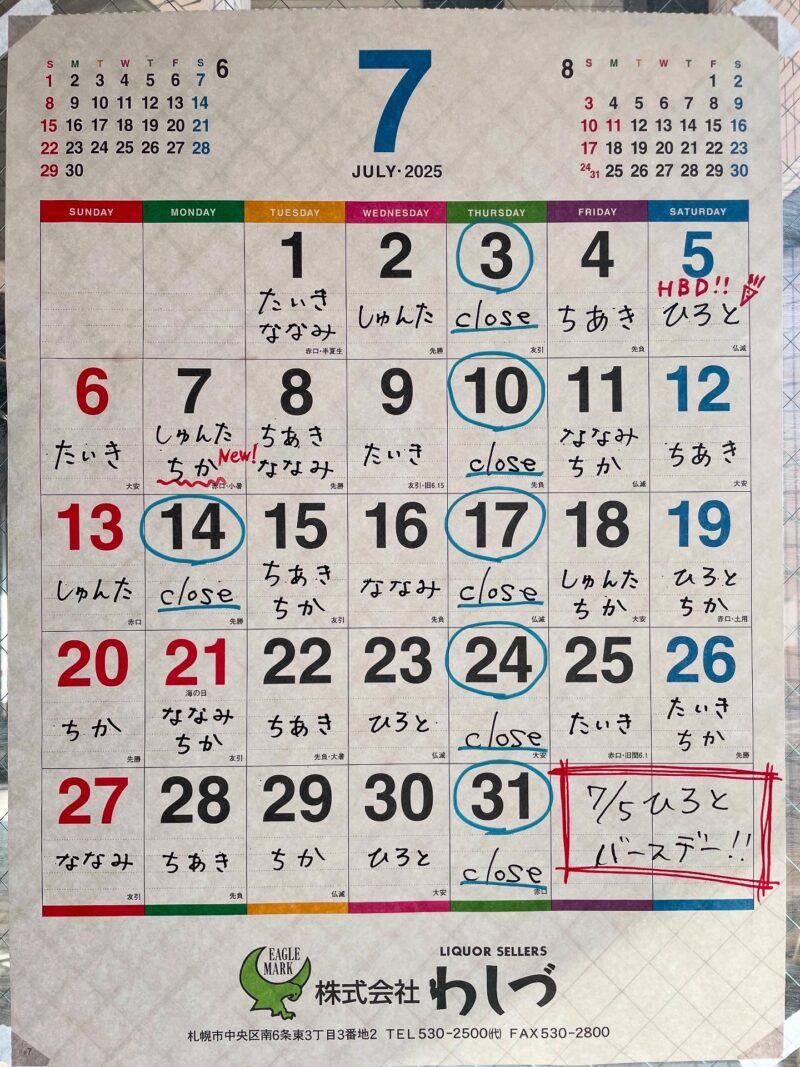 6
S M T W T F S
1 2 3 4 5 6 7
8 9 10 11 12 13 14
15 16 17 18 19 20 21
22 23 24 25 26 27 28
29 30
7
JULY・2025
8
S M T W T F S
1 2
3 4 5 6 7 8 9
10 11 12 13 14 15 16
17 18 19 20 21 22 23
24/31 25 26 27 28 29 30
SUNDAY MONDAY TUESDAY WEDNESDAY THURSDAY FRIDAY SATURDAY
1
たいき
ななみ
赤口・半夏生
2
しゅんた
先勝
3
close
友引
4
ちあき
先負
5
HBD!!
ひろと
仏滅
6
たいき
大安
7
しゅんた
ちか New!
赤口・小暑
8
ちあき
ななみ
先勝
9
たいき
友引・旧6.15
10
close
先負
11
ななみ
ちか
仏滅
12
ちあき
大安
13
しゅんた
赤口
14
close
先勝
15
ちあき
ちか
友引
16
ななみ
先負
17
close
仏滅
18
しゅんた
ちか
大安
19
ひろと
ちか
赤口・土用
20
ちか
先勝
21
海の日
ななみ
ちか
友引
22
ちあき
先負・大暑
23
ひろと
仏滅
24
close
大安
25
たいき
赤口・旧閏6.1
26
たいき
ちか
先勝
27
ななみ
友引
28
ちあき
先負
29
ちか
仏滅
30
ひろと
大安
31
close
赤口
7/5 ひろと
バースデー!!
EAGLE
MARK
LIQUOR SELLERS
株式会社 わしづ
札幌市中央区南6条東3丁目3番地2 TEL 530-2500㈹ FAX 530-2800